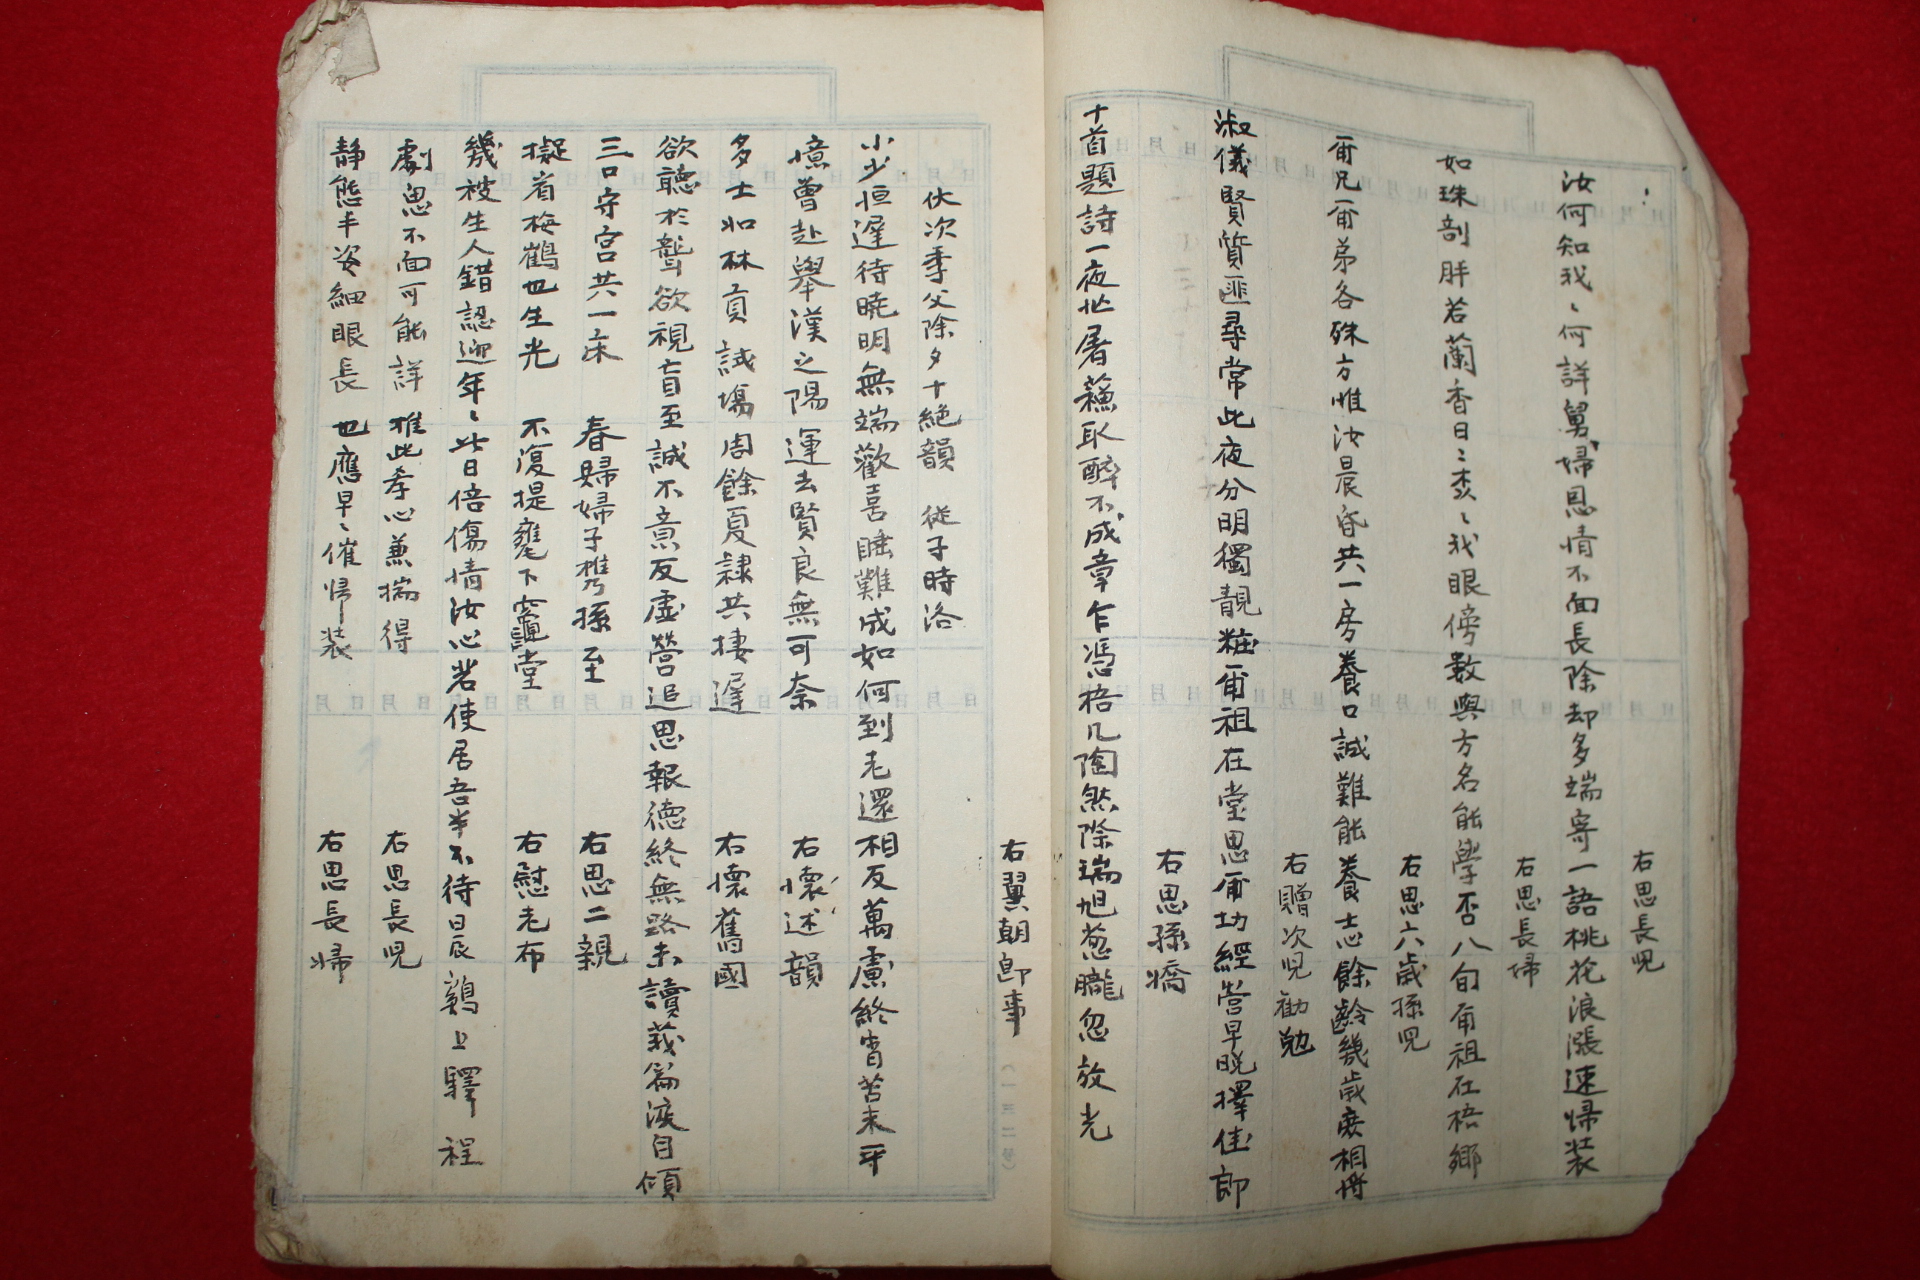 右思長児
汝何知我〻何詳舅婦恩情不面長除却多端寄一語桃花浪漲速帰装
右思長婦
如珠剖胖若蘭香日〻森〻我眼傍数與方名能學否八旬甭祖在梧鄉
右思六歲孫児
甭兄甭弟各殊方惟汝晨昏共一房養口誠難能養志餘齡幾歲庻相將
右贈次児勸勉
淑儀賢質匪尋常此夜分明獨靚粧甭祖在堂思甭切經营早晚擇佳郎
右思孫嬌
十首題詩一夜忙屠蘇取醉不成章乍憑梧几陶然際瑞旭葱朧忽放光
右翼朝即事
伏次季父除夕十絶韻 從子時洛
小少恒遲待曉明無端歡喜睡難成如何到老還相反萬慮終宵苦未平
憶曾赴擧漢之陽運去賢良無可奈 右懷述韻
多士如林貢試場周餘夏隷共捿遲 右懷舊國
欲聽於聾欲視盲至誠不意反虛營追思報德終無路未讀莪篇淚自傾
三口守宮共一床 春婦婦子携孫至 右思二親
擬省梅鶴也生光 不復提甕下竈堂 右慰老布
幾被生人錯認迎年〻此日倍傷情汝心若使居吾半不待日辰鷄上驛程
劇思不面可能詳 惟此孝心兼揣得 右思長児
静態丰姿細眼長 也應早〻催帰装 右思長婦